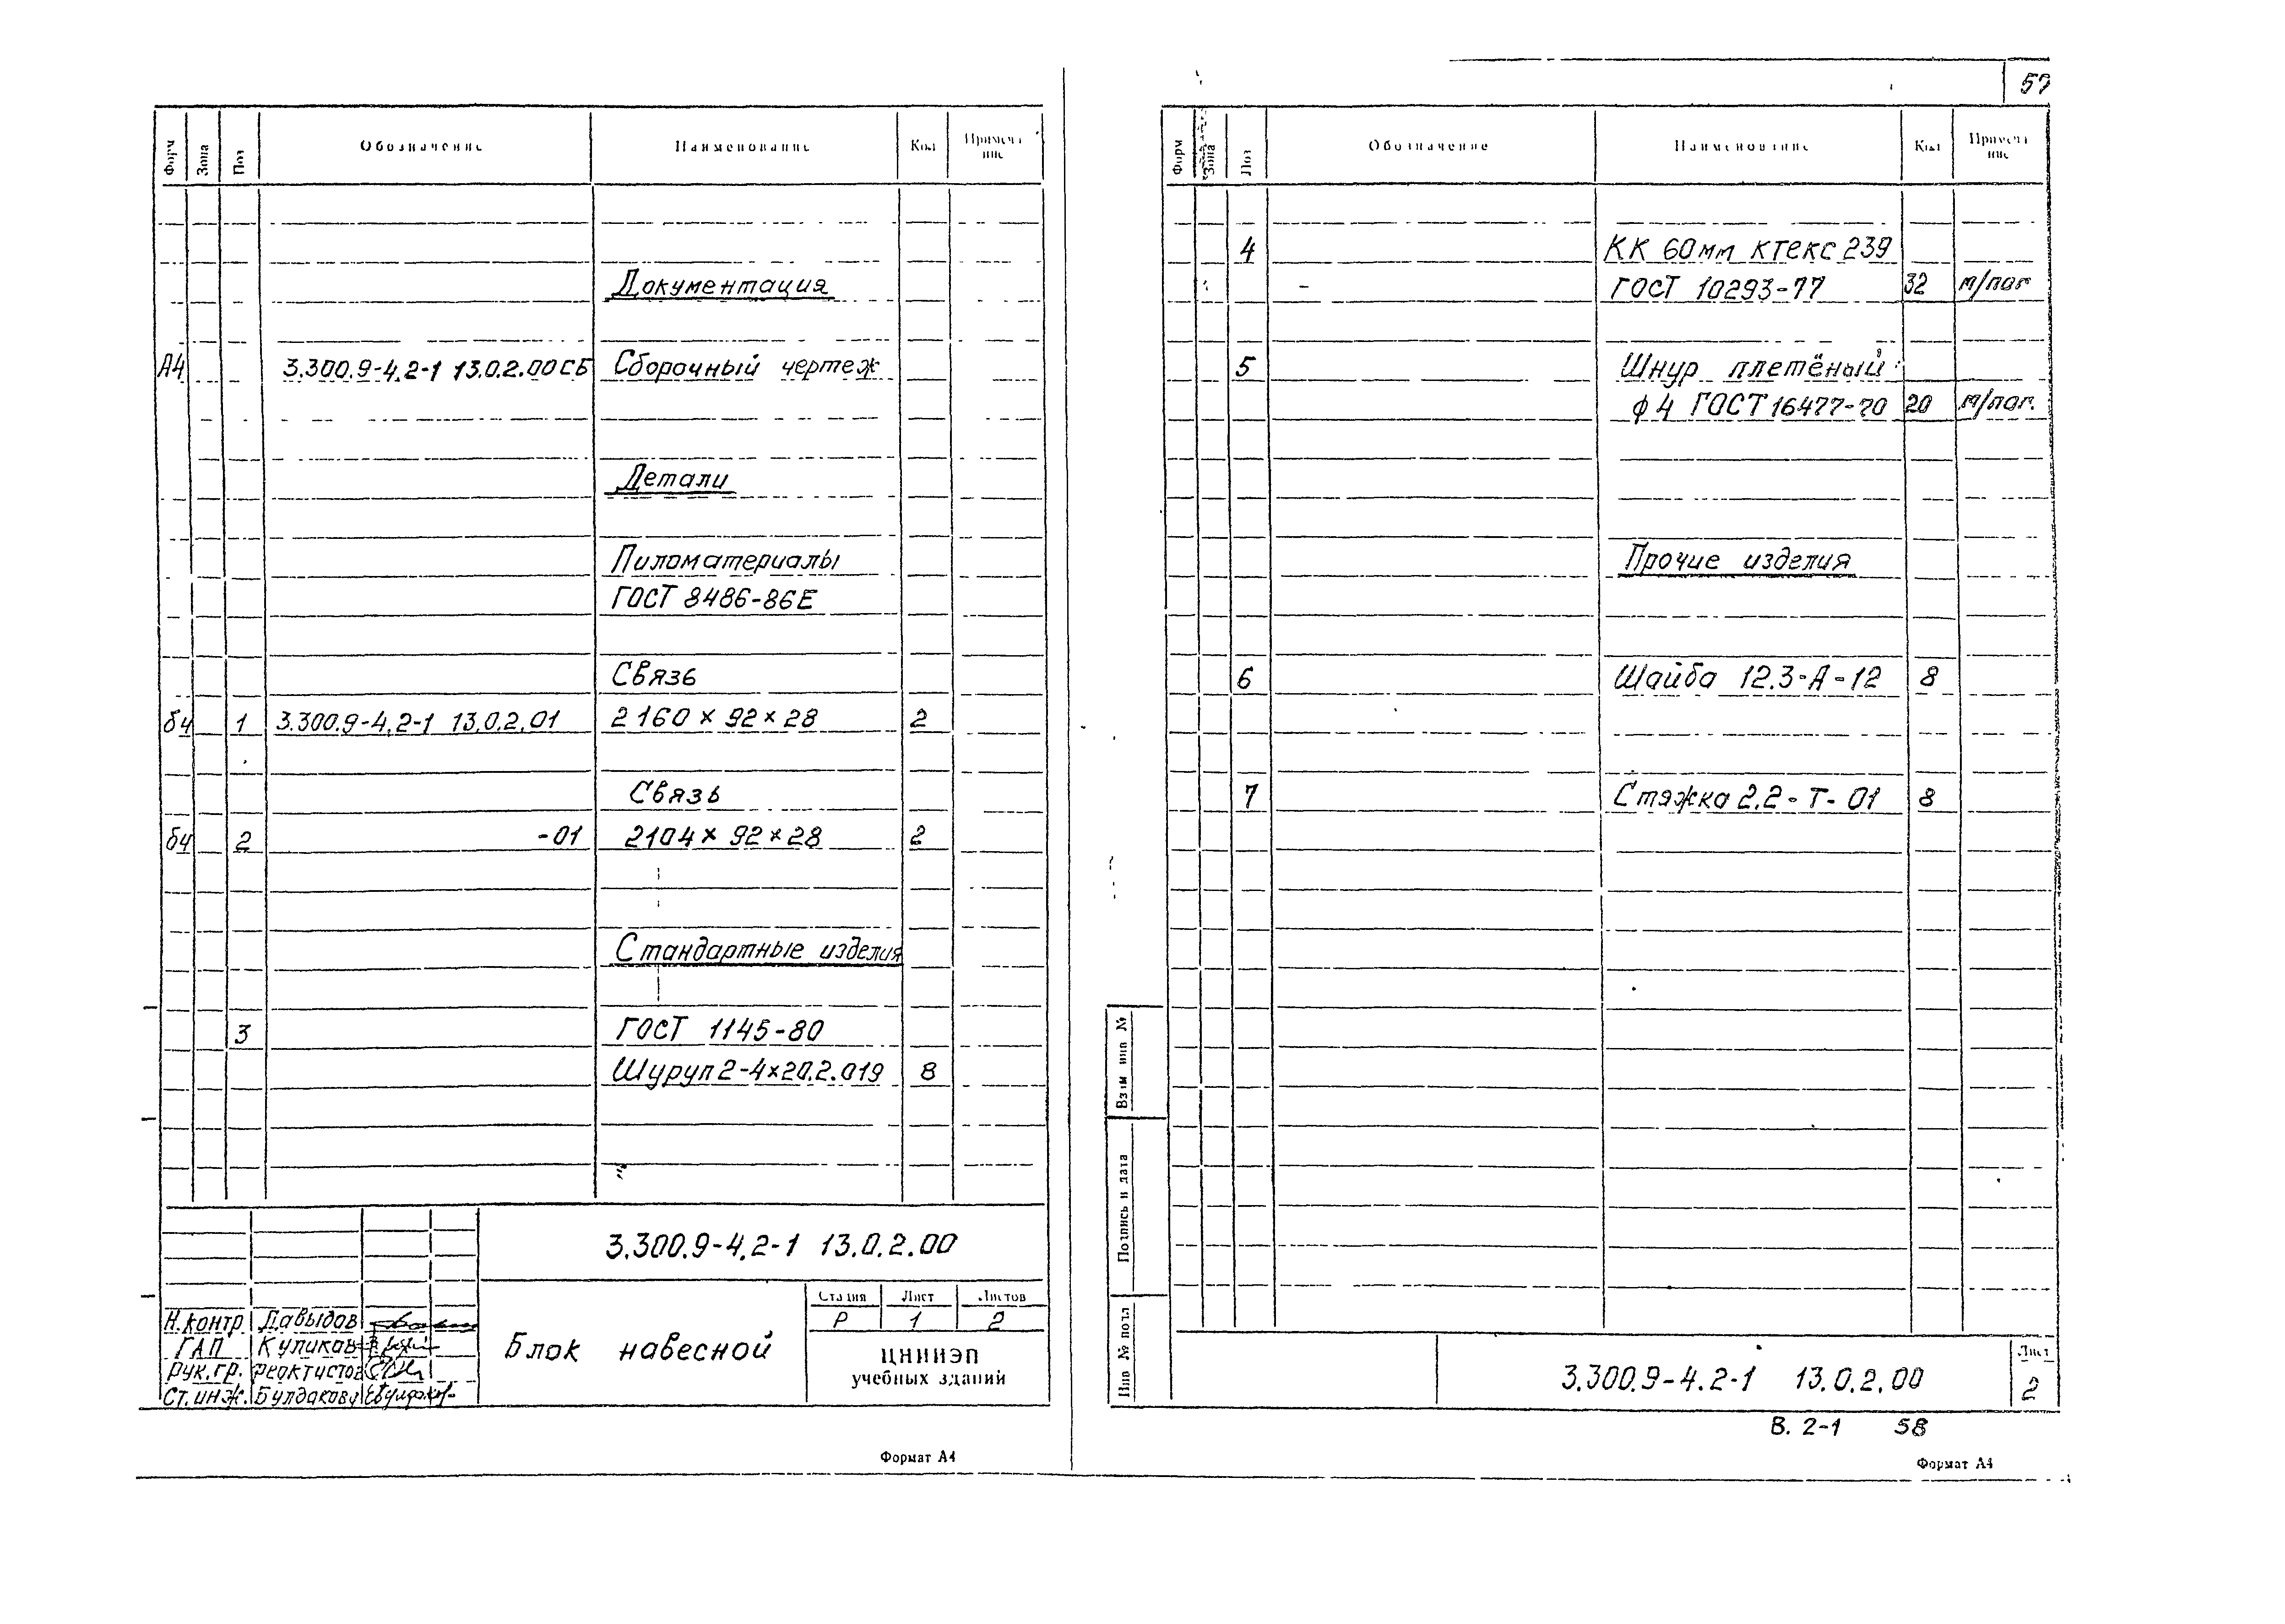 Форм Зона Поз Обозначение Наименование Кол Примечание
Документация
А4 3.300.9-4.2-1 13.0.2.00СБ Сборочный чертеж
Детали
Пиломатериалы
ГОСТ 8486-86Е
Связь
бч 1 3.300.9-4.2-1 13.0.2.01 2160 × 92 × 28 2
Связь
бч 2 -01 2104 × 92 × 28 2
Стандартные изделия
3 ГОСТ 1145-80
Шуруп 2-4×20.2.019 8
3.300.9-4.2-1 13.0.2.00
Н.контр Давыдов
ГАП Куликов
Рук.гр. Феоктистов
Ст.инж. Булдакова
Блок навесной
Стадия Лист Листов
Р 1 2
ЦНИИЭП
учебных зданий
Формат А4
57
Форм Зона Поз Обозначение Наименование Кол Примечание
4 КК 60мм ктекс 239
ГОСТ 10293-77 32 м/пог
5 Шнур плетёный
ф4 ГОСТ 16477-70 20 м/пог.
Прочие изделия
6 Шайба 12.3-А-12 8
7 Стяжка 2.2-Т-01 8
Взам инв №
Подпись и дата
Инв № подл
3.300.9-4.2-1 13.0.2.00
Лист
2
В. 2-1 58
Формат А4